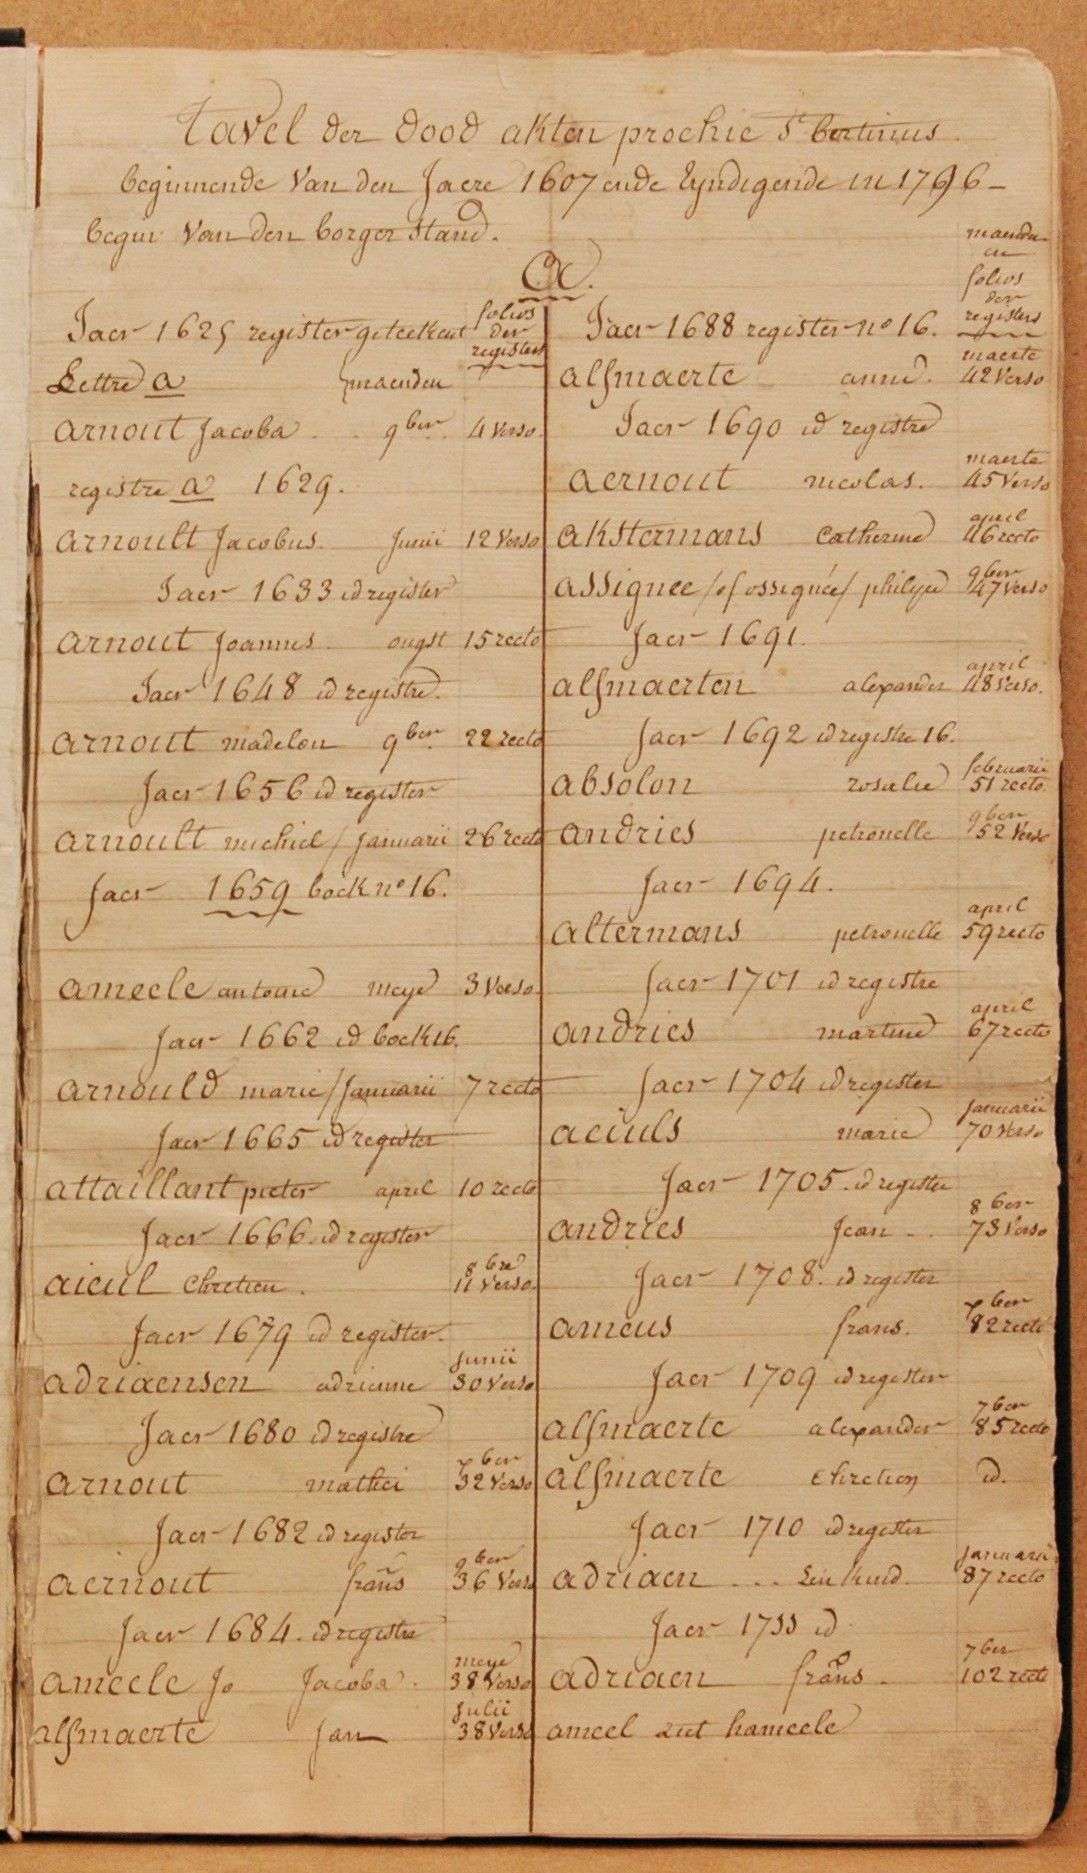 Tavel der dood akten prochie St bertinus
beginnende van den Jaere 1607 ende Eyndigende in 1796 –
begin van den borger stand.
A.
folios
der
registers
Jaer 1625 register geteekent
Lettre a maenden
arnout Jacoba . . 9ber . 4 verso.
registre a 1629.
arnoult Jacobus. Junii 12 verso
Jaer 1633 id register
arnout Joannes. ougst 15 recto
Jaer 1648 id registre.
arnout madelon 9ber 22 recto
Jaer 1656 id register
arnoult michiel / Januarii 26 recto
Jaer 1659 boek no 16.
ameele antoine meye 3 verso
Jaer 1662 id boek 16.
arnould marie / Januarii 7 recto
Jaer 1665 id register
attaillant pieter april 10 recto
Jaer 1666. id register
aieul Chretien . 8bre 11 verso.
Jaer 1679 id register.
adriaensen adrienne Junii 30 verso
Jaer 1680 id registre
arnout mathei 7ber 32 verso
Jaer 1682 id register
aernout frans 9ber 36 verso
Jaer 1684. id registre
ameele Jo Jacoba . meye 38 verso
alsmaerte Jan Julii 38 verso
maenden
en
folios
der
registers
Jaer 1688 register no 16.
alsmaerte anne. maerte 42 verso
Jaer 1690 id registre
aernout nicolas. maerte 45 verso
akstermans Catherine april 46 recto
assignee / of ossignée / philipe 9ber 47 verso
Jaer 1691.
alsmaerten alexander april 48 verso.
Jaer 1692 id registre 16.
absolon rosalie februarii 51 recto.
andries petronelle 9ber 52 verso
Jaer 1694.
altermans petronelle april 59 recto
Jaer 1701 id registre
andries martine april 67 recto
Jaer 1704 id register
aciuls marie Januarii 70 verso
Jaer 1705. id register
andries Jean . . 8ber 73 verso
Jaer 1708. id register
ameus frans. 7ber 82 recto
Jaer 1709 id register
alsmaerte alexander 7ber 85 recto
alsmaerte chretien id.
Jaer 1710 id register
adriaen . . . Een kind. Januarii 87 recto
Jaer 1733 id
adriaen frans . 7ber 102 recto
ameel ziet hameele